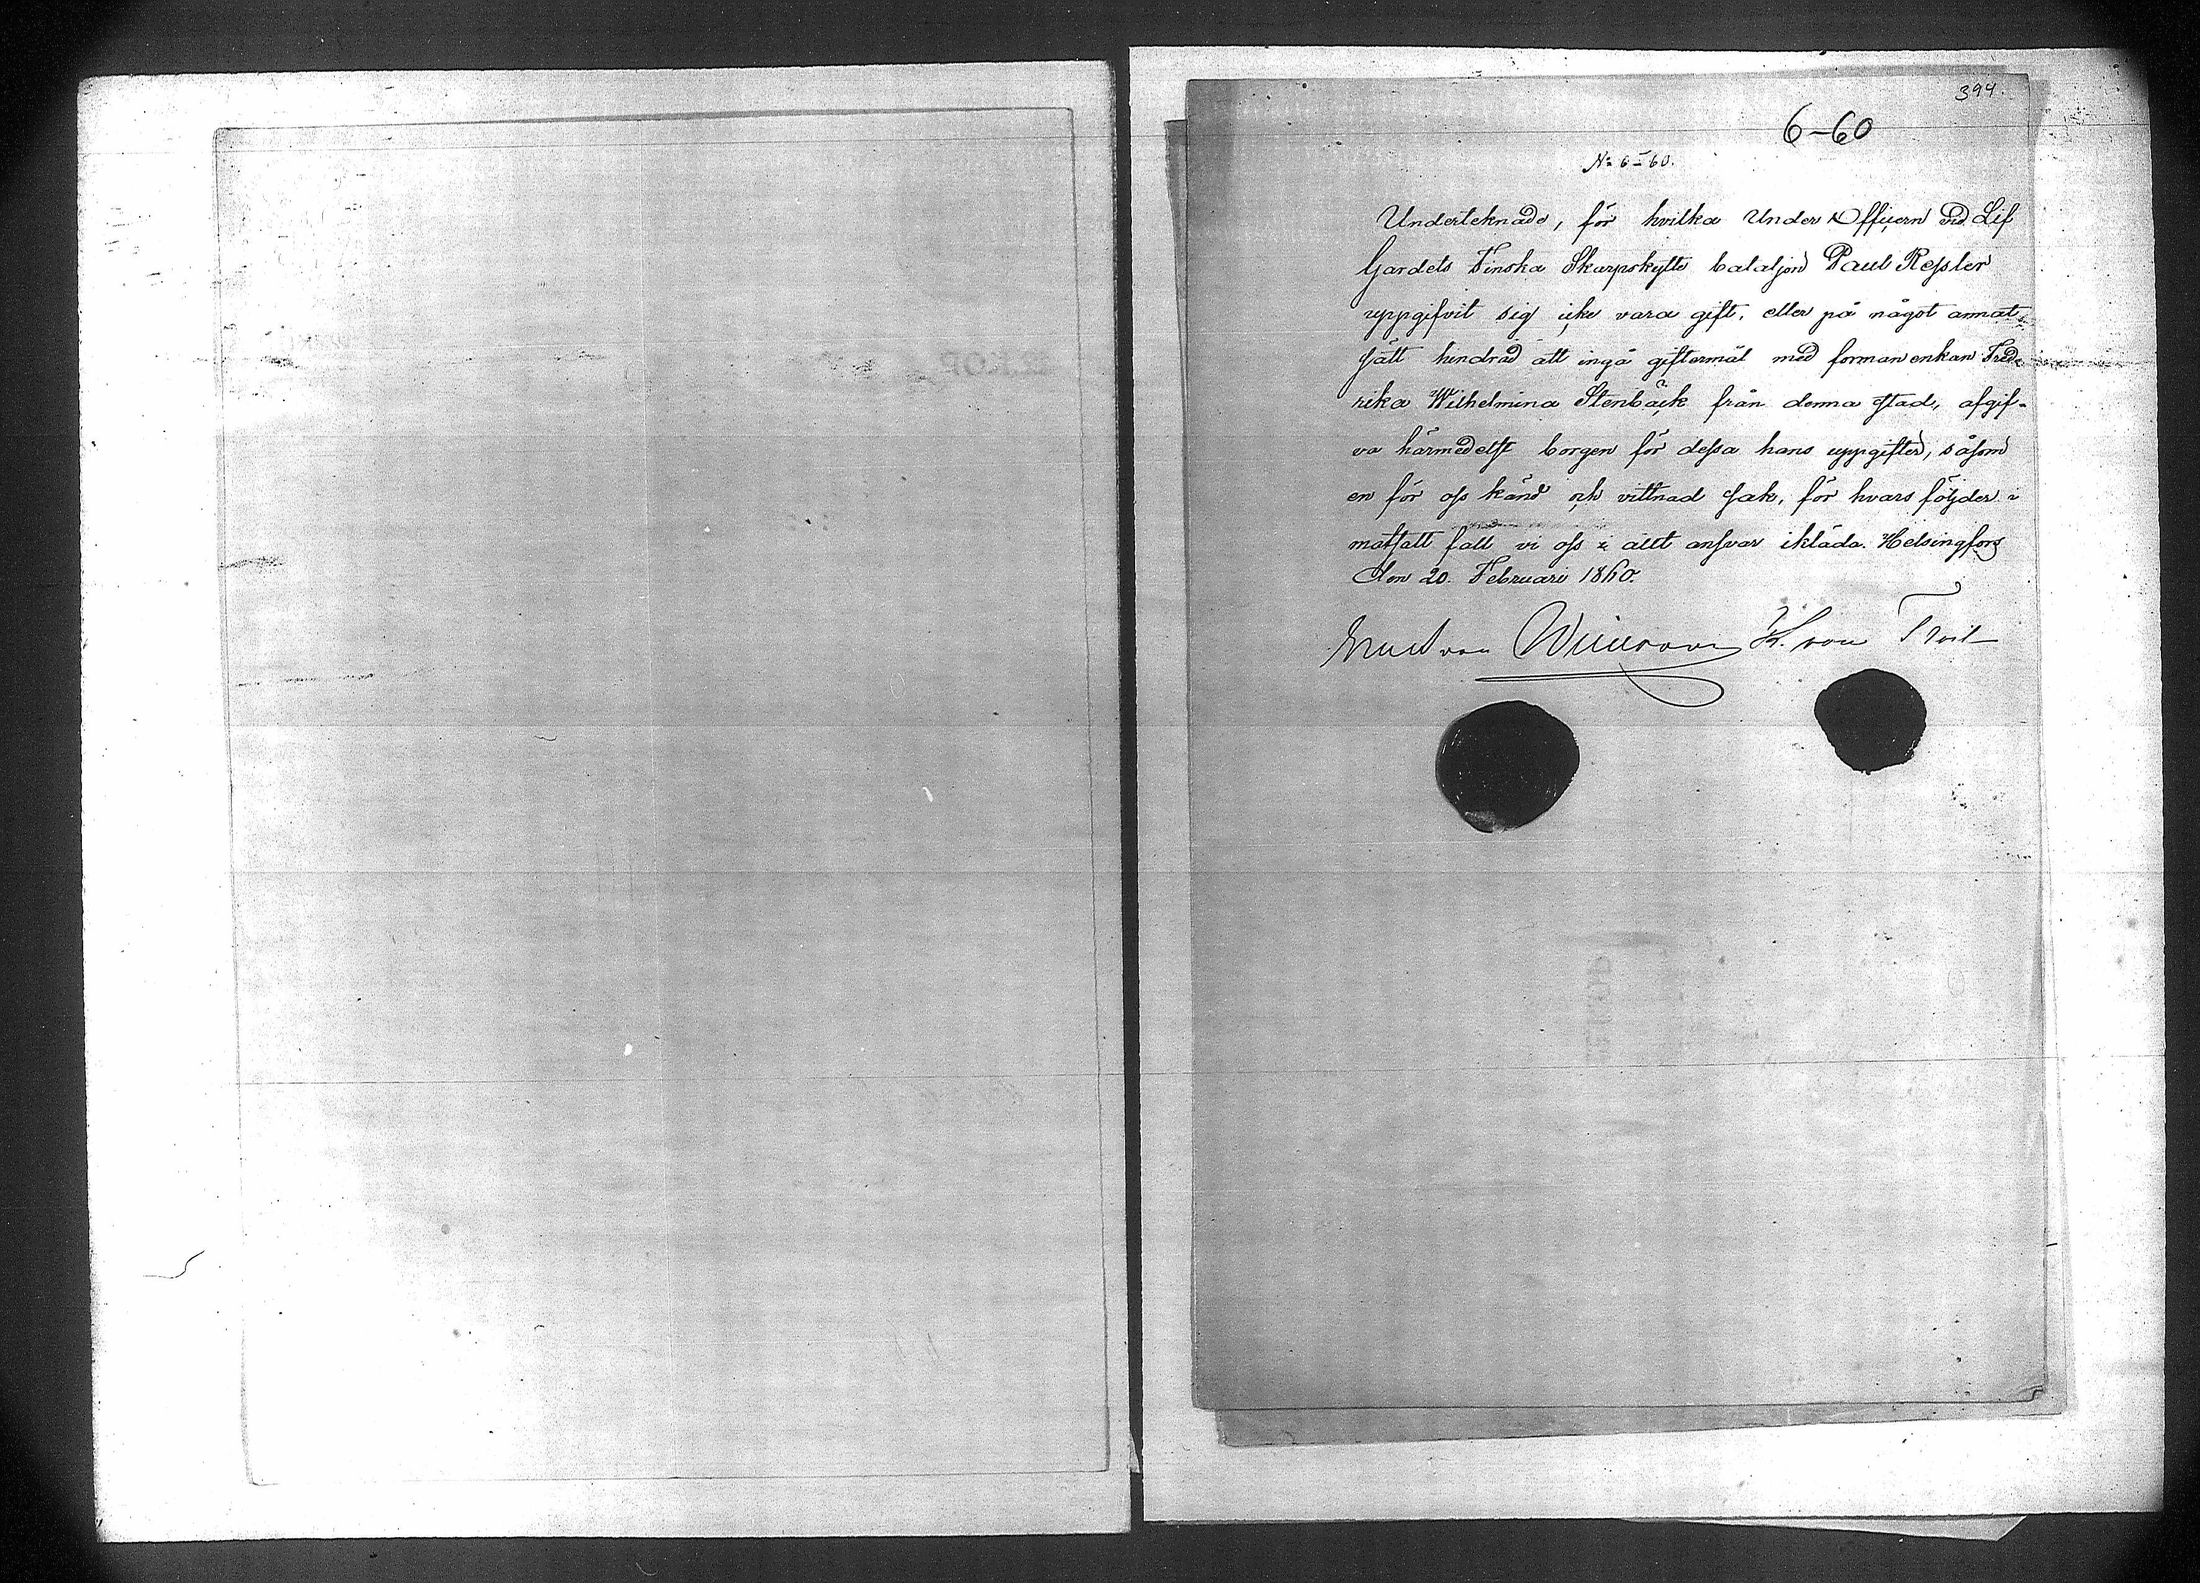 394.
6-60
No 6-60.
Underteknade, för hvilka Under Officern vid Lif
Gardets Finska Skarpskytte bataljon Paul Ressler
uppgifvit sig icke vara gift, eller på något annat
sätt hindrad att ingå giftermål med forman enkan Fred-
rika Wilhelmina Stenbäck från denna stad, afgif-
va härmedelst borgen för dessa hans uppgifter, såsom
en för oss känd och vittnad sak, för hvars följder i
motsatt fall vi oss i allt ansvar ikläda. Helsingfors
den 20. Februari 1860.
von K. von Troil